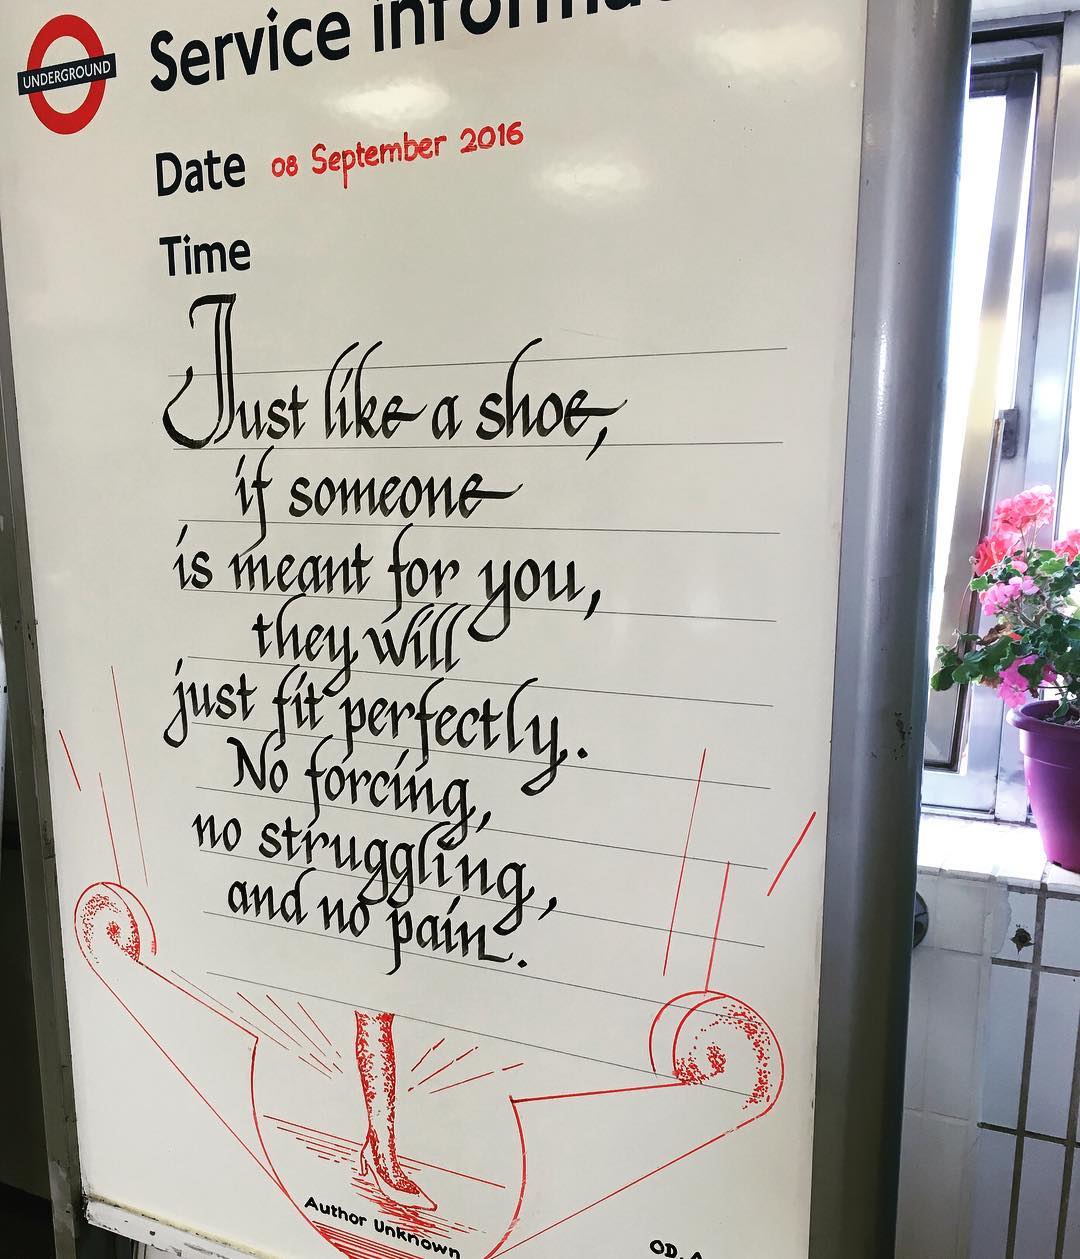 UNDERGROUND
Service
Date 08 September 2016
Time
Just like a shoe,
if someone
is meant for you,
they will
just fit perfectly.
No forcing,
no struggling,
and no pain.
Author Unknown
OD.